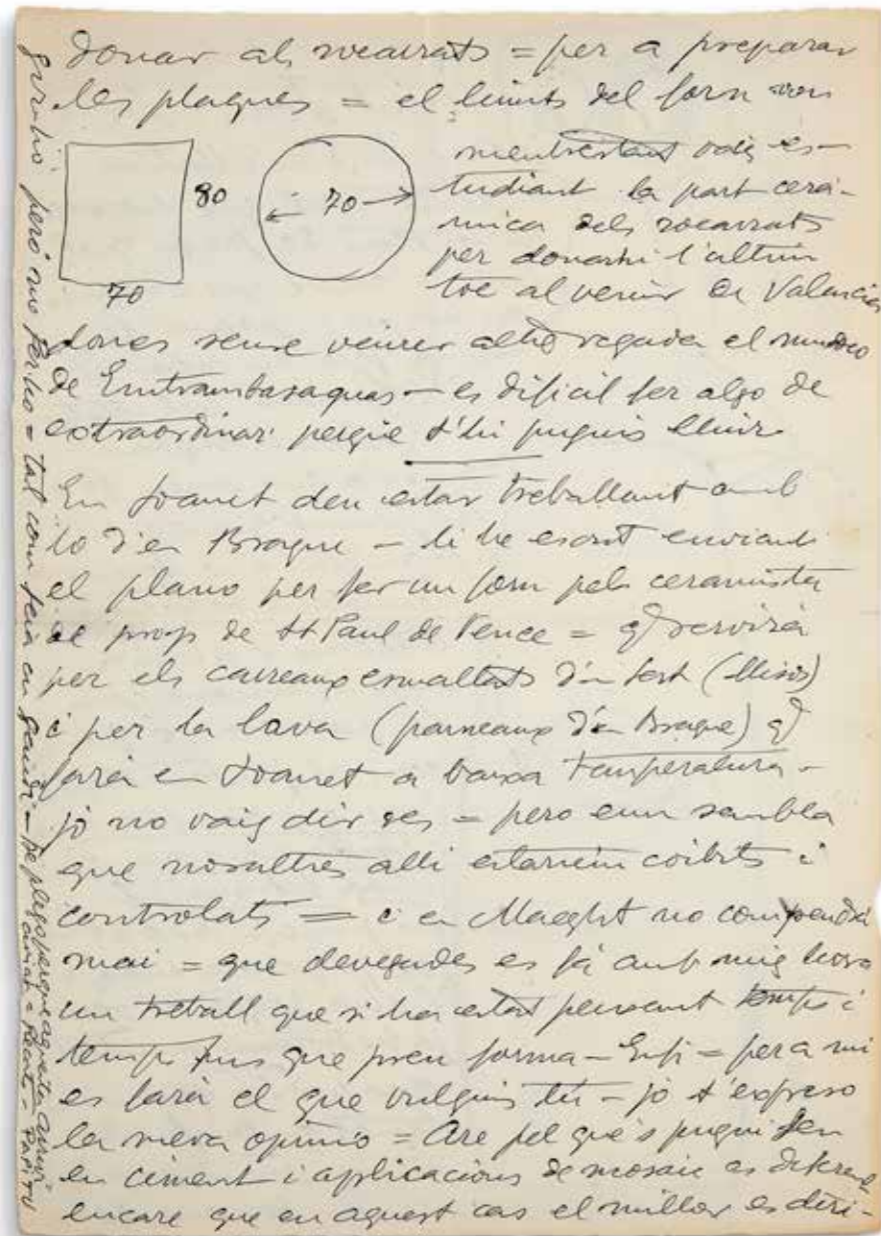 donar als socarrats = per a preparar
les plaques = el limits del forn son
80
70
70
mentrestant vaig es-
tudiant la part cerà-
mica dels socarrats
per donarhi l'ultim
toc al venir de Valencia
doncs sense veurer altre vegada el museo
de Emtrambasaguas – es dificil fer algo de
extraordinari perque t'hi puguis lluir
En Joanet deu estar treballant amb
lo d'en Braque – li he escrit enviant
el plano per fer un forn pels ceramista
de prop de St Paul de Vence = q) servirà
per els carreaux esmaltats d'en (llisos)
i per la lava (panneaux d'en Braque) q)
farà en Joanet a baixa temperatura –
jo no vaig dir res – pero em sembla
que nosaltres alli estariem coibits i
controlats = i en Maeght no compendrà
mai = que devegades es fà amb mig hora
un treball que si ha estat pensant temps i
temps fins que pren forma – Enfi = per a mi
es farà el que vulguis tú – jo t'expreso
la meva opinio = Are pel que's pugui fer
en ciment i aplicacions de mosaic es diferent
encare que en aquest cas el millor es diri-
girlho però no ferho = tal com feia en Gaudi – he plego perque aquesta arrivi
aviat = Records – Papitu